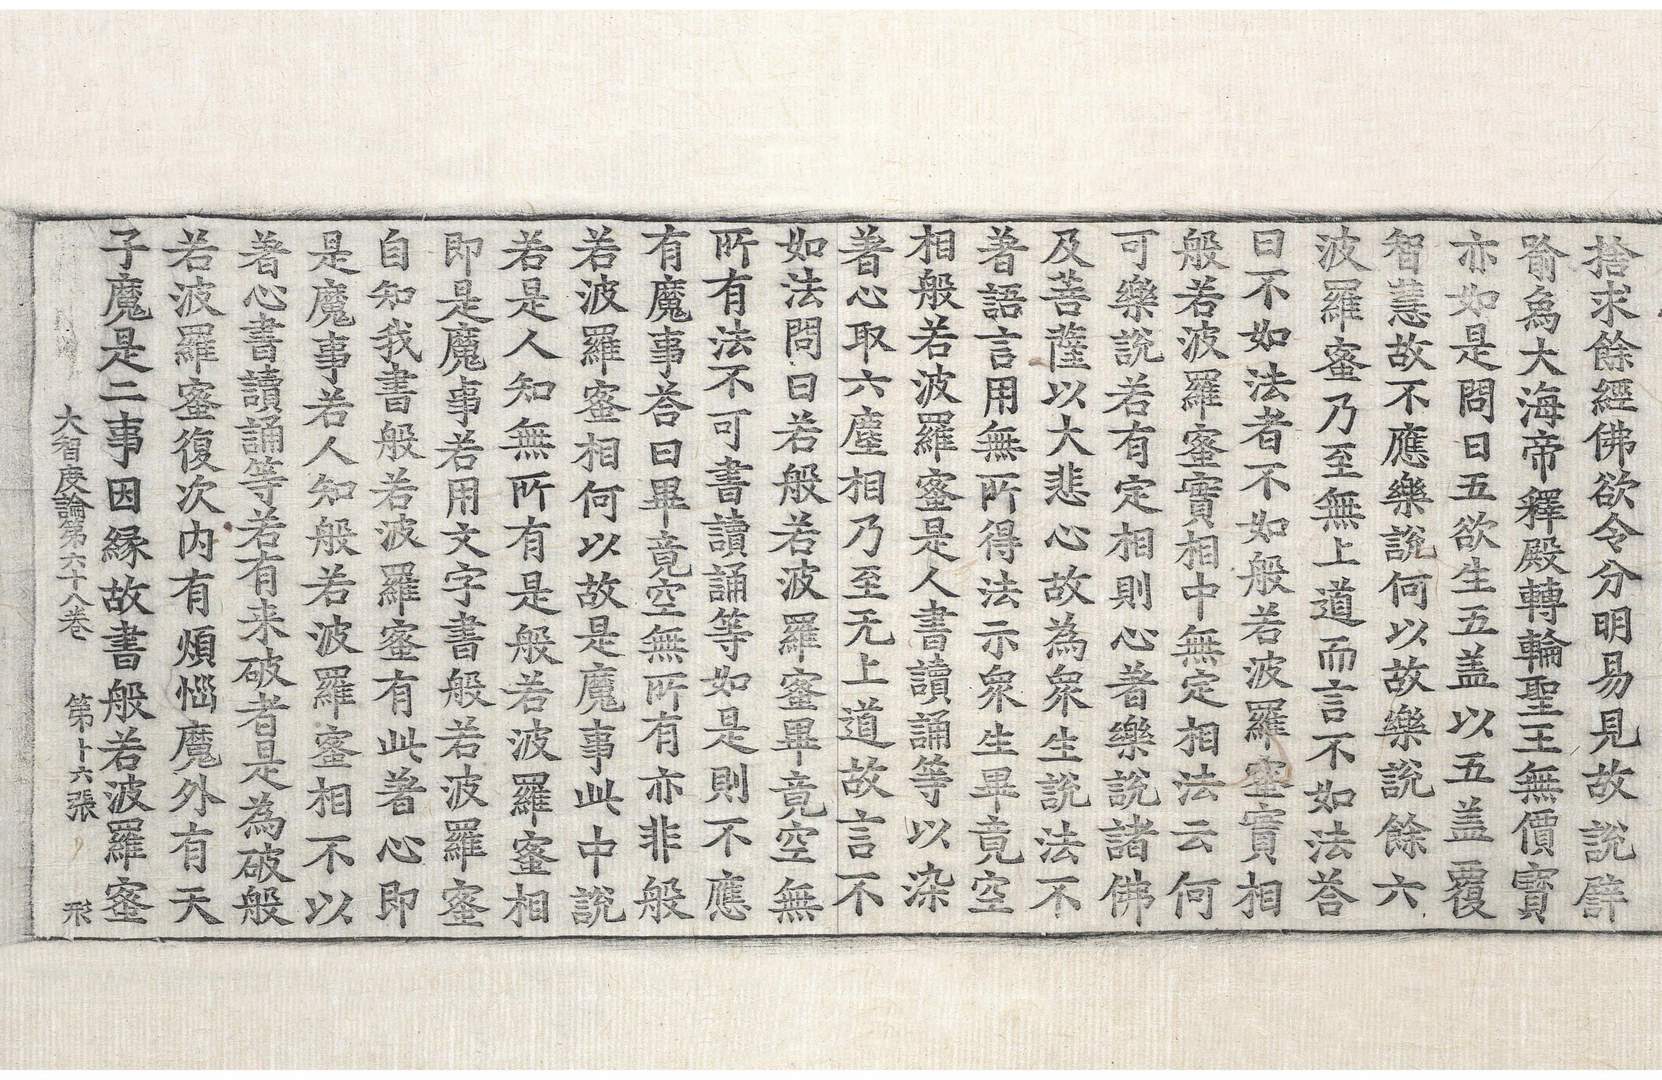 捨求餘經佛欲令分明易見故說譬
喻為大海帝釋殿轉輪聖王無價寶
亦如是問曰五欲生五盖以五盖覆
智慧故不應樂說何以故樂說餘六
波羅蜜乃至無上道而言不如法荅
曰不如法者不如般若波羅蜜實相
般若波羅蜜實相中無定相法云何
可樂說若有定相則心著樂說諸佛
及菩薩以大悲心故為衆生說法不
著語言用無所得法示衆生畢竟空
相般若波羅蜜是人書讀誦等以染
著心取六塵相乃至无上道故言不
如法問曰若般若波羅蜜畢竟空無
所有法不可書讀誦等如是則不應
有魔事荅曰畢竟空無所有亦非般
若波羅蜜相何以故是魔事此中說
若是人知無所有是般若波羅蜜相
即是魔事若用文字書般若波羅蜜
自知我書般若波羅蜜有此著心即
是魔事若人知般若波羅蜜相不以
著心書讀誦等若有来破者是為破般
若波羅蜜復次内有煩惱魔外有天
子魔是二事因緣故書般若波羅蜜
大智度論第六十八卷 第十六張